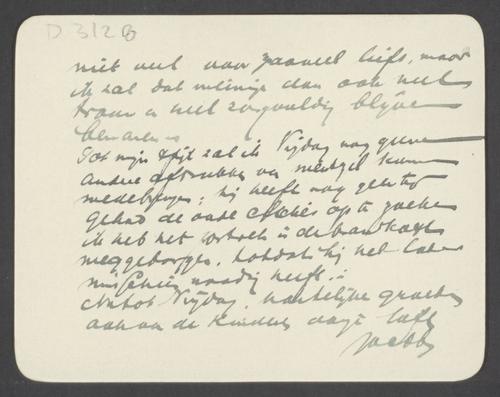 D 3128
niet veel voor zooveel liefs, maar
ik zal dat weinige dan ook heel
trouw en heel zorgvuldig blijven
bewaren
Tot mijn spijt zal ik Vrijdag nog geene
andere afdrukken van kunnen
medebrengen; hij heeft nog geen tijd
gehad de oude clichés op te zoeken
ik heb het portret in de brandkast
weggeborgen, totdat hij het later
misschien noodig heeft.
Vrijdag, hartelijke groeten
aan de kinderen